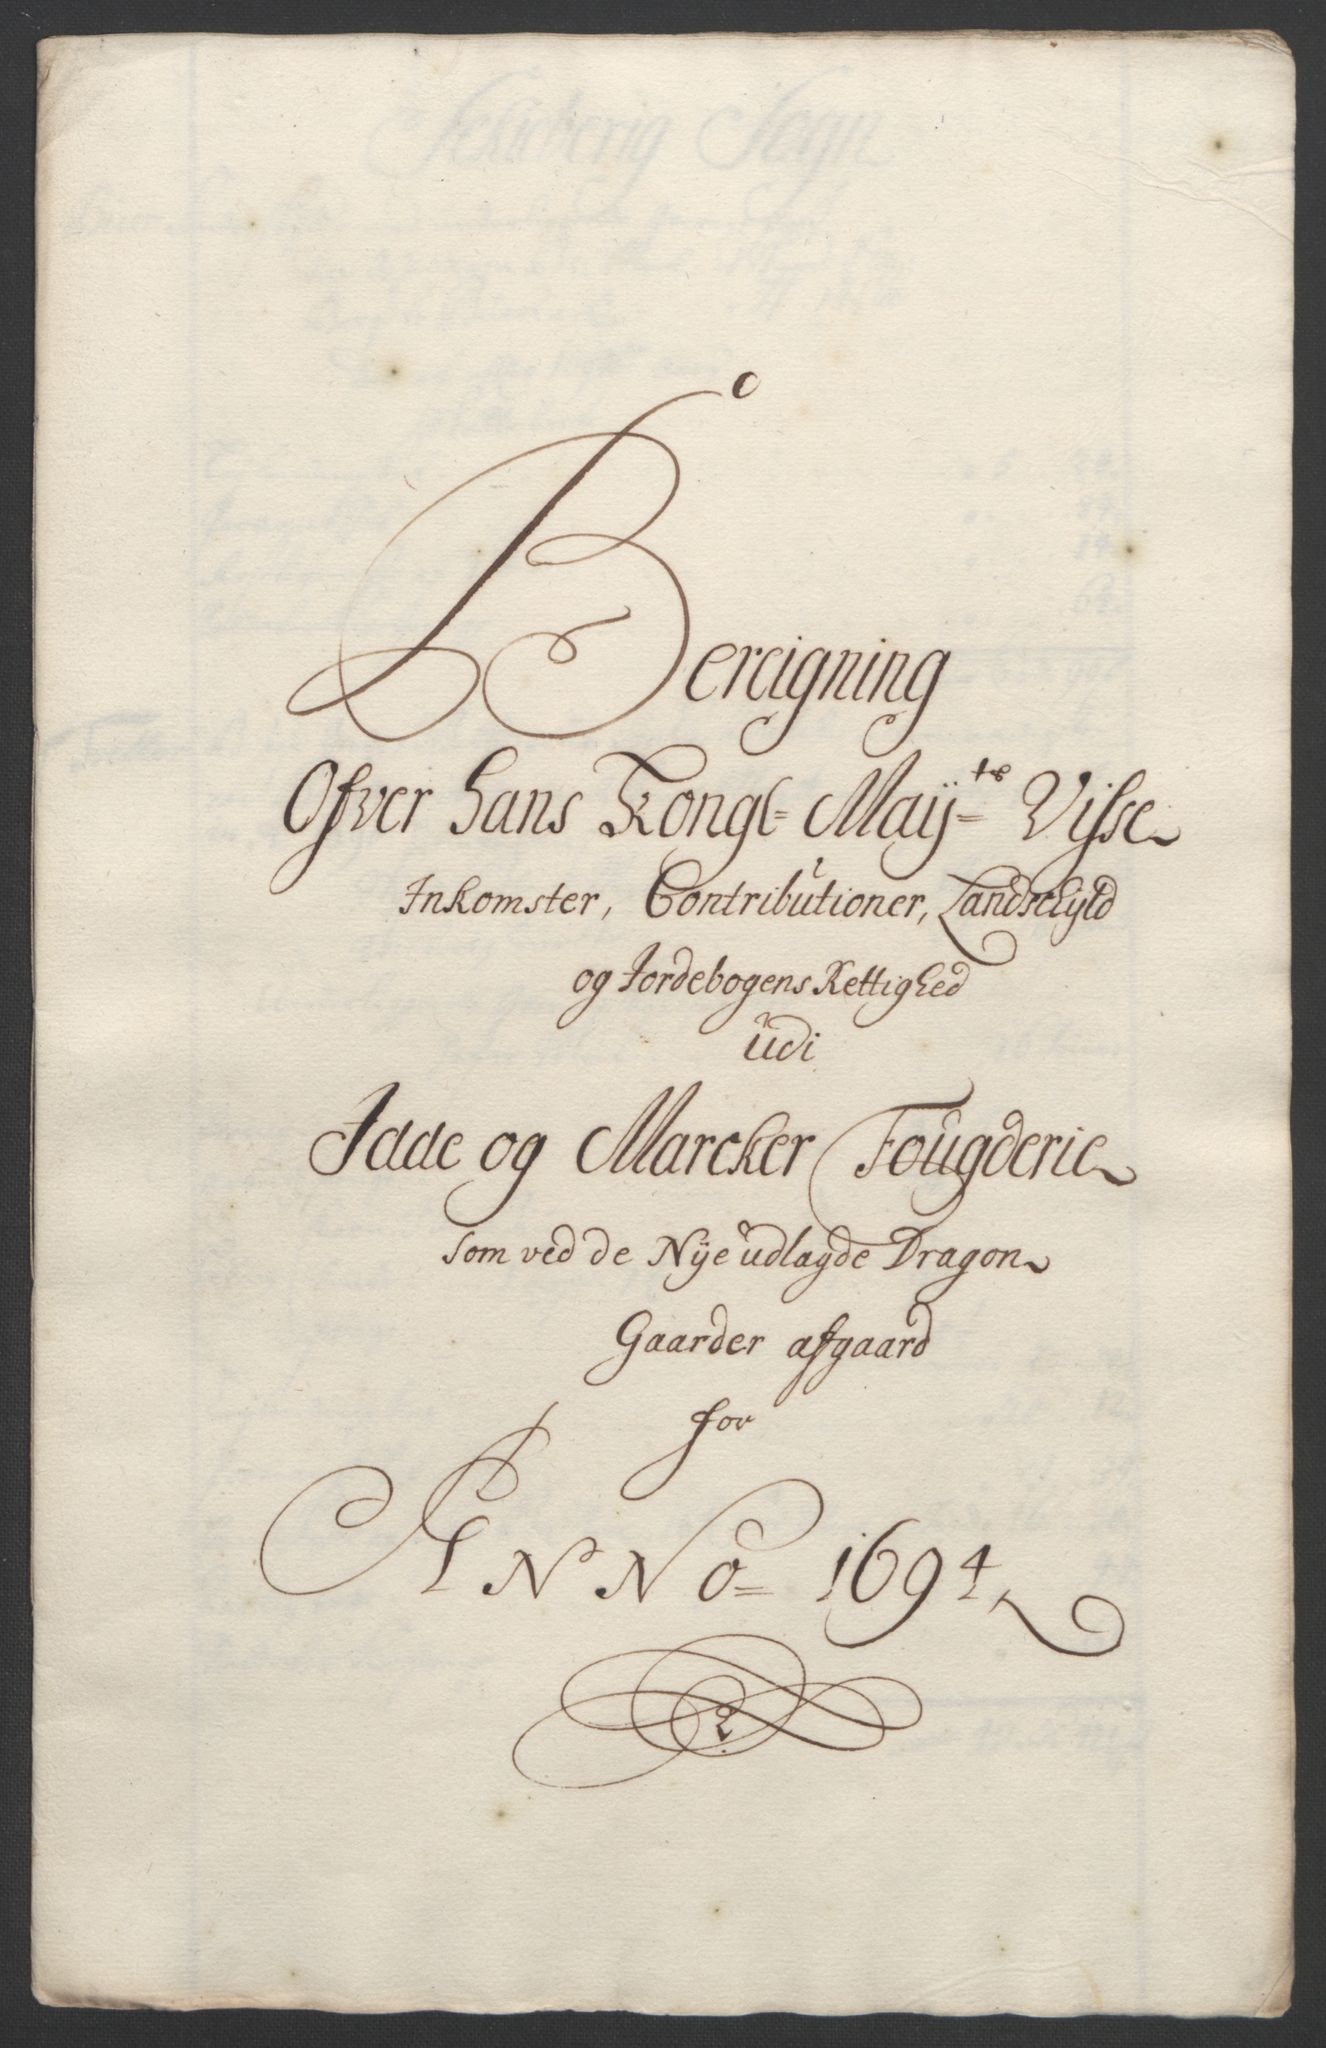 Bereigning
Ofver Hans Kongl= Maÿ=ts Visse
Inkomster, Contributioner, Landschyld
og Jordebogens Rettighed
udi
Idde og Marcker Fougderie
som ved de Nÿe udlagde Dragon
Gaarder afgaard
for
ANNO= 1694